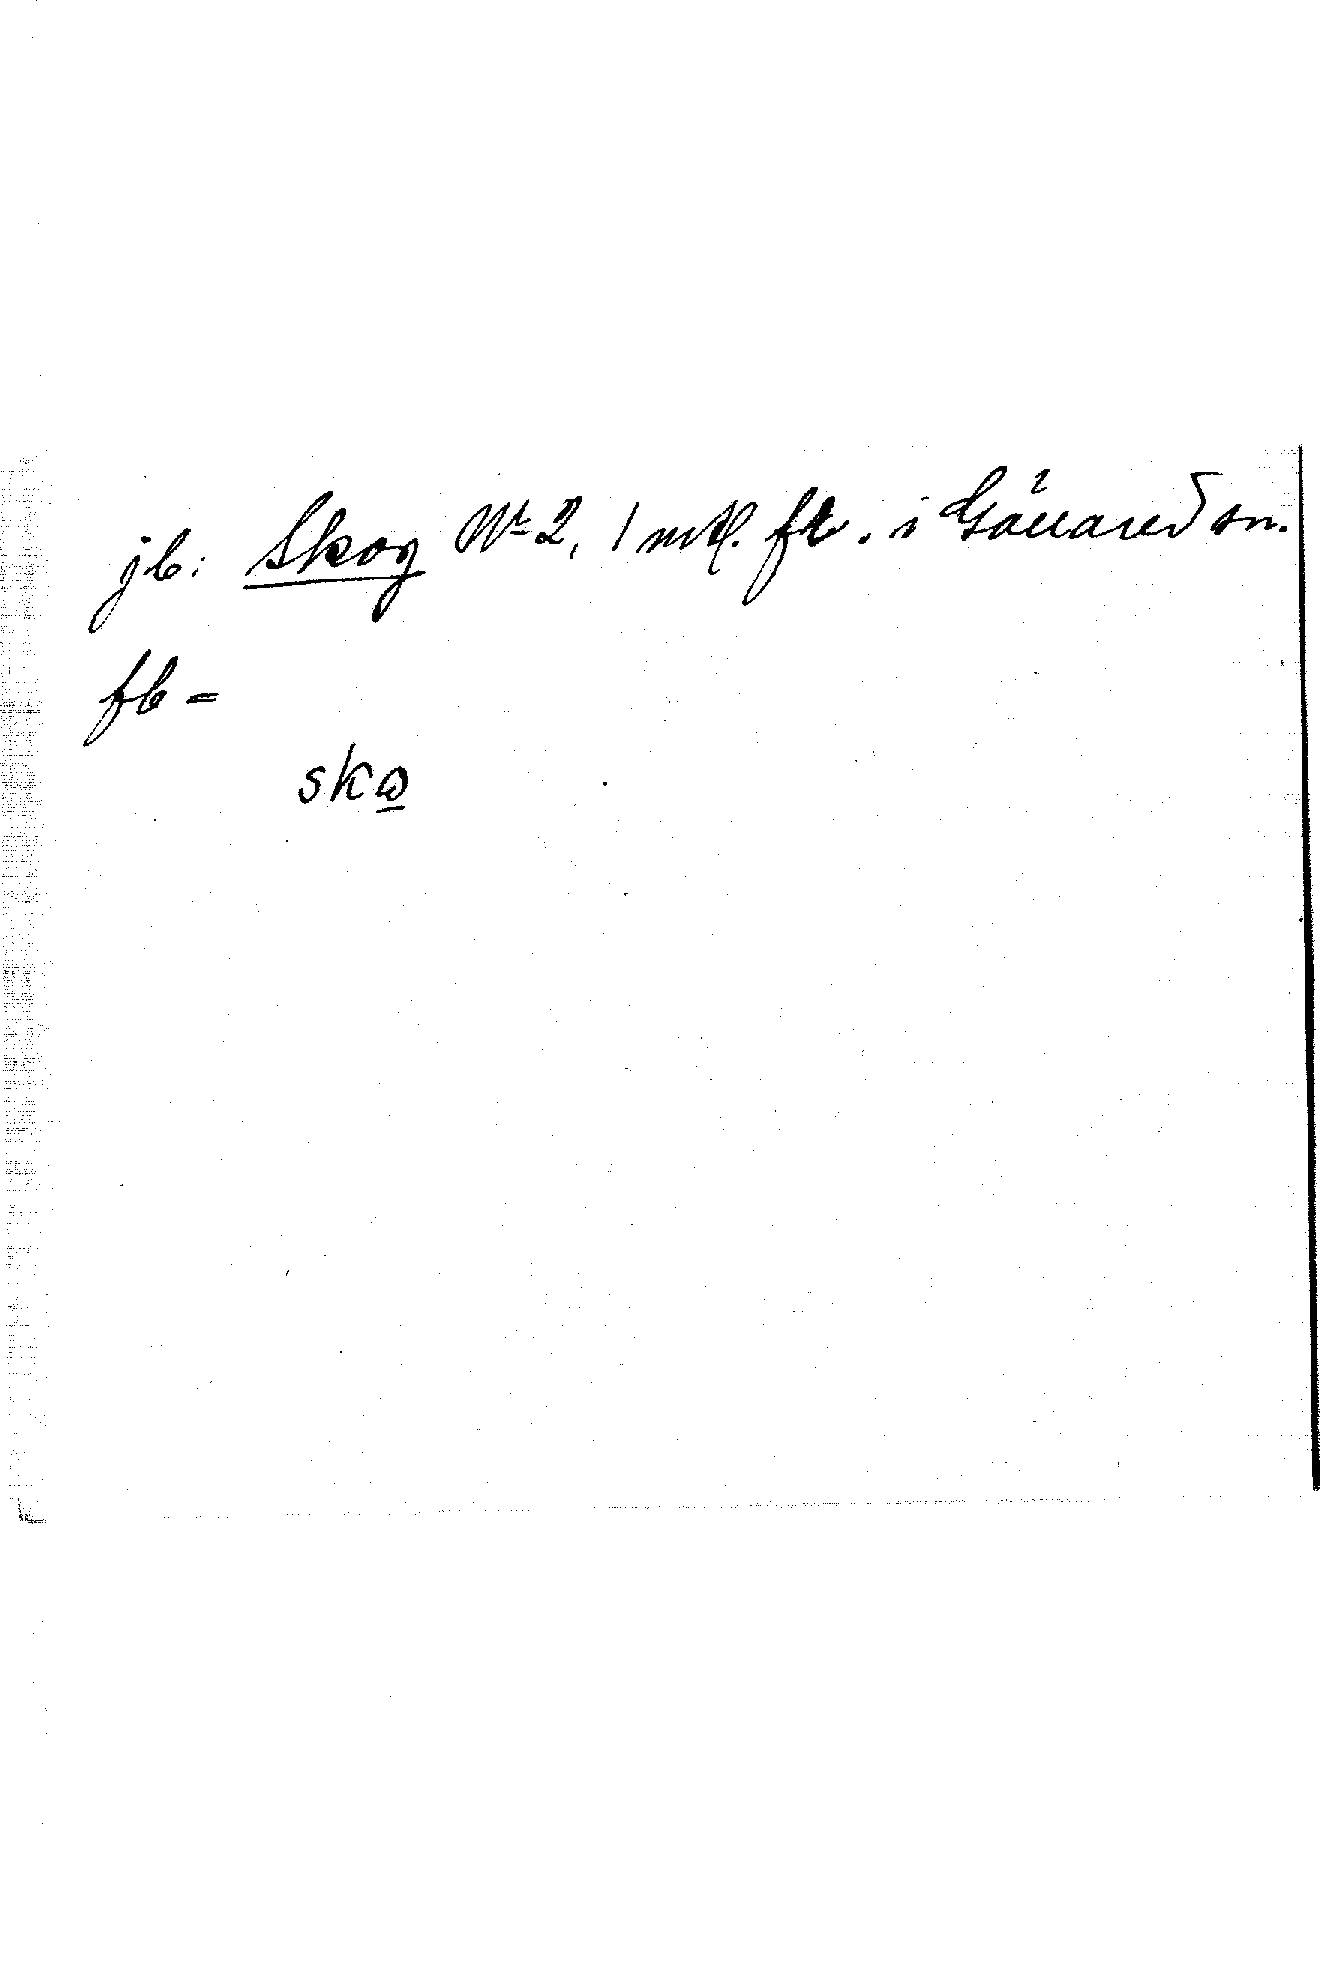 jb: Skog No 2, 1 mtl. fr. i Gällared sn.
fb =
sko